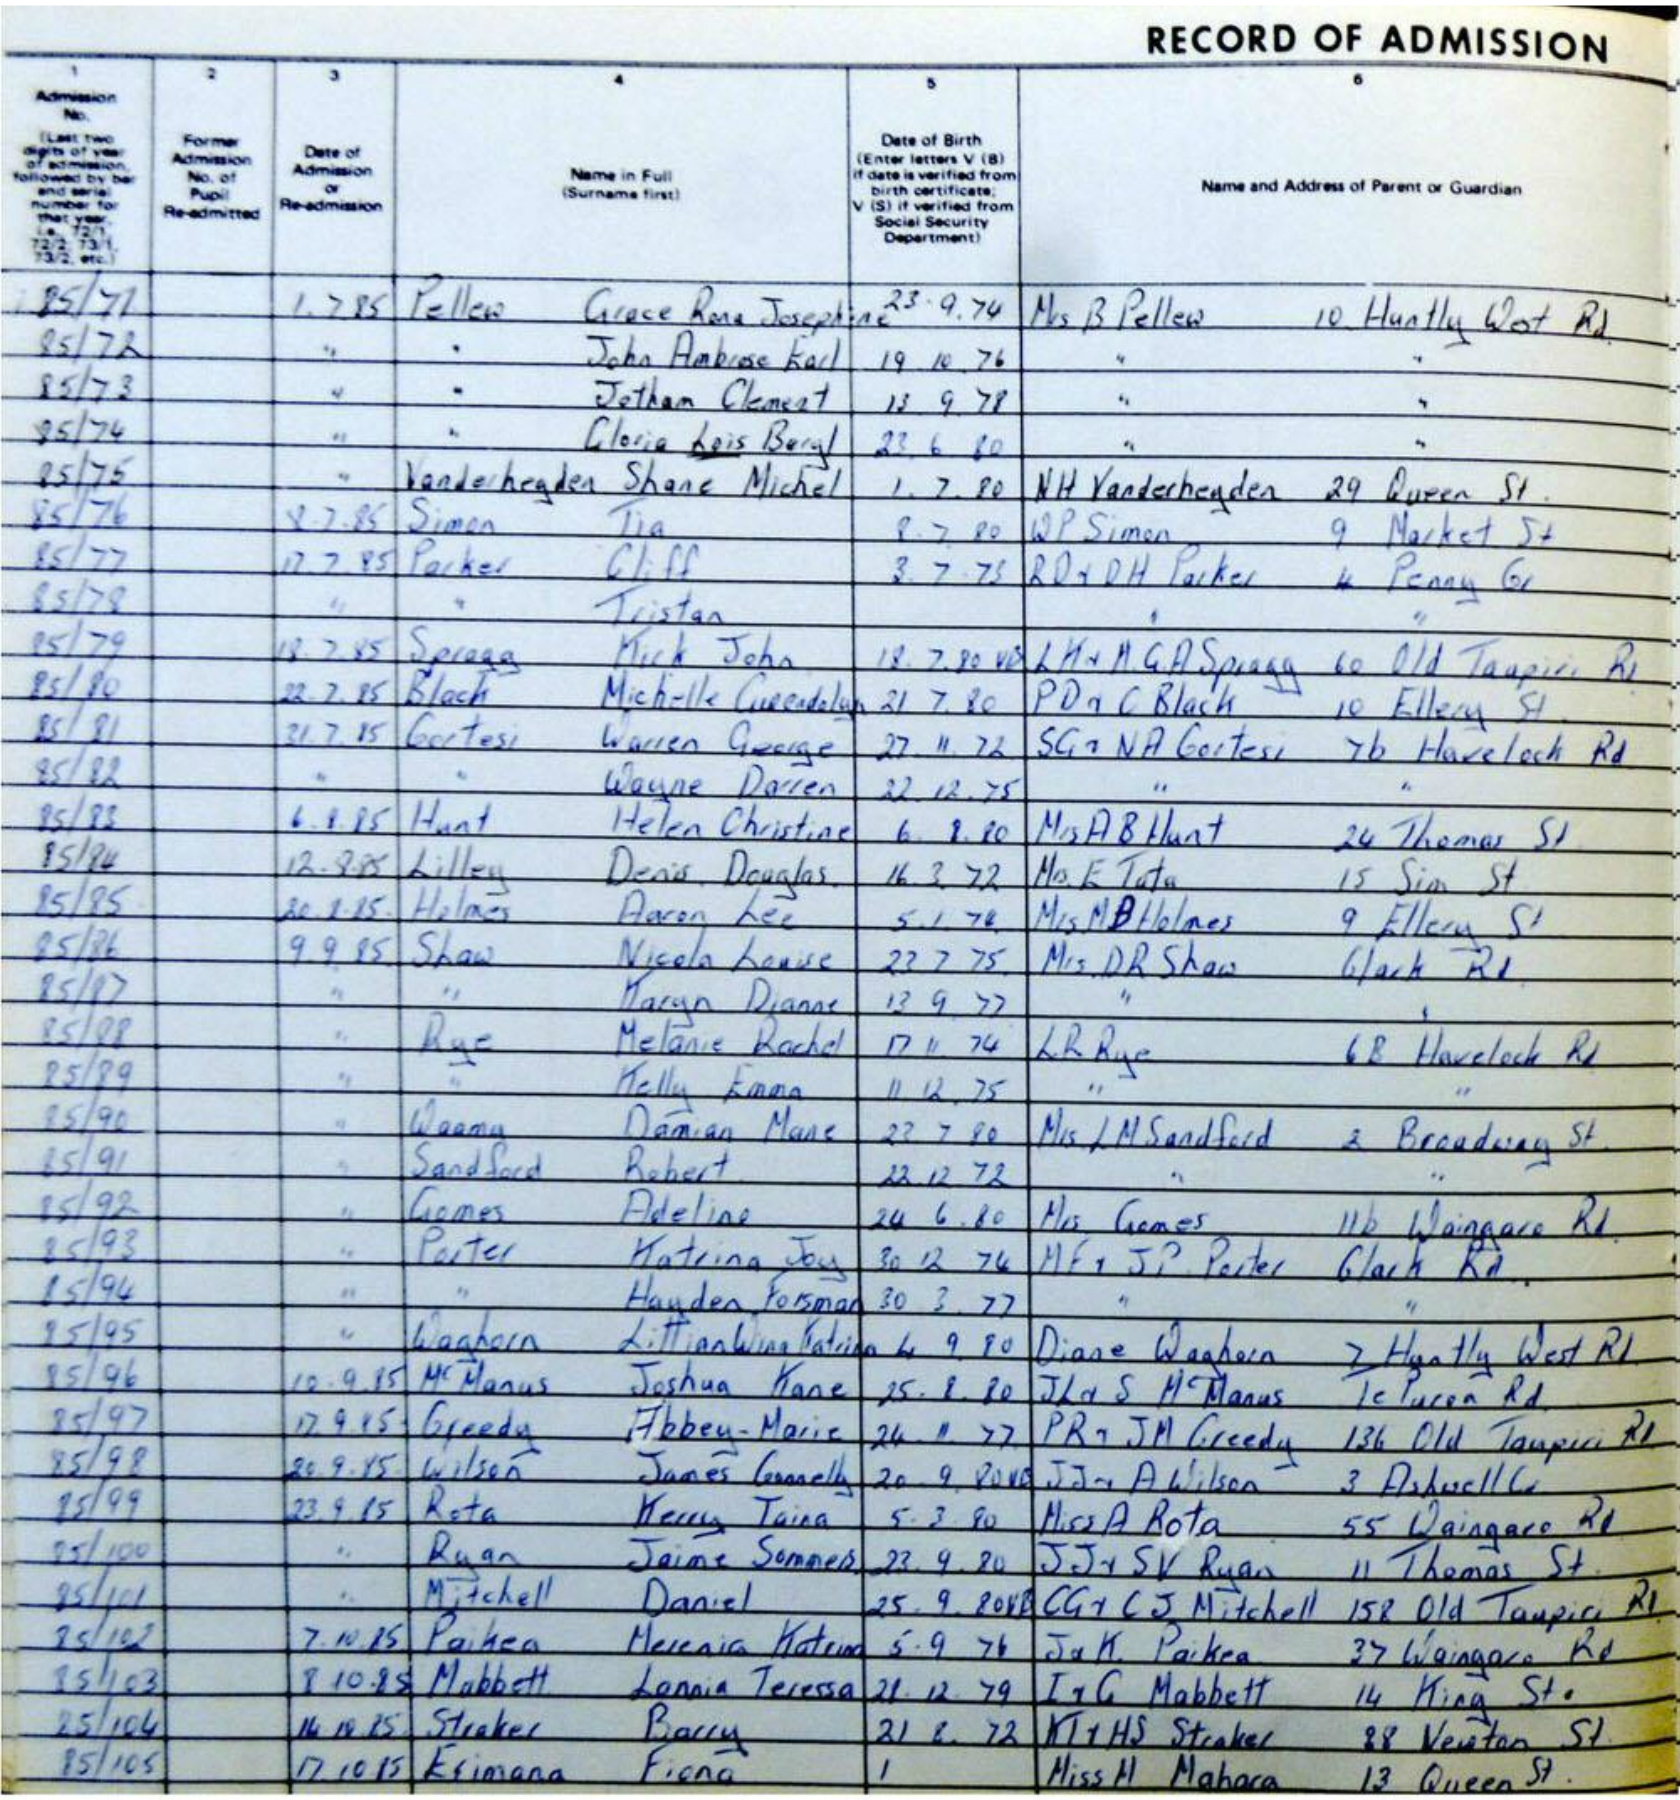 RECORD OF ADMISSION
1 2 3 4 5 6
Admission No. (Last two digits of year of admission, followed by bar and serial number for that year, i.e. 72/1, 72/2, 73/1, 73/2, etc.) Former Admission No. of Pupil Re-admitted Date of Admission or Re-admission Name in Full (Surname first) Date of Birth (Enter letters V (B) if date is verified from birth certificate; V (S) if verified from Social Security Department) Name and Address of Parent or Guardian
85/71 1.7.85 Pellew Grace Rona Josephine 23.9.74 Mrs B Pellew 10 Huntly West Rd
85/72 " " John Ambrose Earl 19 10 76 " "
85/73 " " Jotham Clement 13 9 78 " "
85/74 " " Gloria Lois Beryl 23 6 80 " "
85/75 " Vanderheyden Shane Michel 1.7.80 NH Vanderheyden 29 Queen St.
85/76 8.7.85 Simon Tia 8.7.80 WP Simon 9 Market St
85/77 17.7.85 Parker Cliff 3.7.75 RD & DH Parker 4 Penny Cr
85/78 " " Tristan " "
85/79 18.7.85 Spragg Kirk John 18.7.80 VB LK & M.G.A Spragg 60 Old Taupiri Rd
85/80 22.7.85 Black Michelle Gwendolyn 21 7.80 PD & C Black 10 Ellery St
85/81 31.7.85 Cortesi Warren George 27.11.72 SG & NA Cortesi 7b Havelock Rd
85/82 " " Wayne Darren 22.12.75 " "
85/83 6.8.85 Hunt Helen Christine 6.8.80 Mrs A B Hunt 24 Thomas St
85/84 12.8.85 Lilley Denis Douglas 16.3.72 Mrs E Tata 15 Sim St
85/85 20.8.85 Holmes Aaron Lee 5.1.78 Mrs M B Holmes 9 Ellery St
85/86 9.9.85 Shaw Nicola Louise 23 7 75 Mrs DR Shaw Clark Rd
85/87 " " Karyn Dianne 13 9 77 " "
85/88 " Rye Melanie Rachel 17 11 74 LR Rye 6B Havelock Rd
85/89 " " Kelly Emma 11 12.75 " "
85/90 " Waamu Damian Mane 23 7 80 Mrs L M Sandford 2 Broadway St
85/91 " Sandford Robert 22.12 72 " "
85/92 " Gomes Adeline 24 6.80 Mrs Gomes 11b Waingaro Rd
85/93 " Porter Katrina Joy 30 12 74 MF & JP Porter Clark Rd
85/94 " " Hayden Forsman 30 3.77 " "
85/95 " Waghorn Lillian Wina Katrina 4 9 80 Diane Waghorn 7 Huntly West Rd
85/96 10.9.85 McManus Joshua Kane 25.8.80 JL & S McManus 1c Rd
85/97 17.9.85 Greedy Abbey-Marie 24 11 77 PR & JM Greedy 136 Old Taupiri Rd
85/98 20.9.85 Wilson James Connelly 20.9.80 VB JJ & A Wilson 3 Ashwell Cr
85/99 23.9.85 Rota Kerry Taina 5.3.80 Miss A Rota 55 Waingaro Rd
85/100 " Ryan Jaime Sommers 23.9.80 JJ & SV Ryan 11 Thomas St
85/101 " Mitchell Daniel 25.9.80 VB CG & CJ Mitchell 158 Old Taupiri Rd
85/102 7.10.85 Paikea Merenia Katrina 5.9 76 J & K Paikea 37 Waingaro Rd
85/103 8 10.85 Mabbett Lonnia Teressa 21.12.79 I & G Mabbett 14 King St.
85/104 14.10.85 Straker Barry 21 8.72 KI & HS Straker 88 Newton St.
85/105 17.10.85 Erimana Fiona 1 Miss M Mahara 13 Queen St.